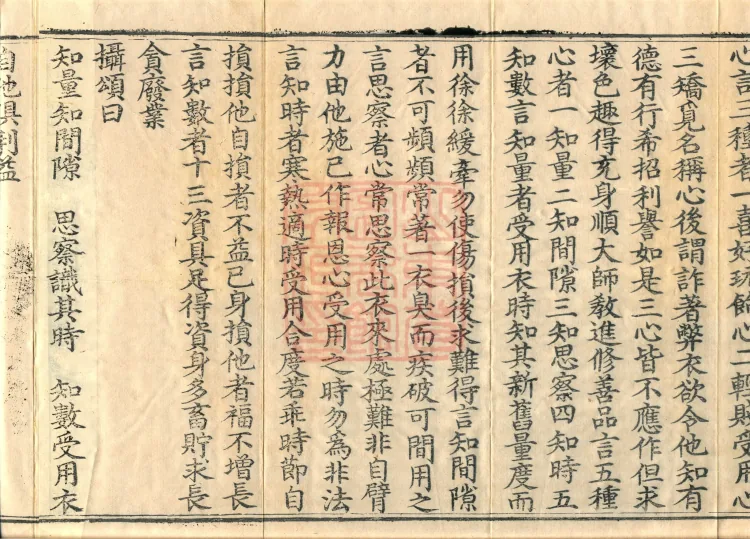 心言三種者一喜好玩飾心二輕賤受用心
三矯覓名稱心後謂詐著弊衣欲令他知有
德有行希招利譽如是三心皆不應作但求
壞色趣得充身順大師敎進修善品言五種
心者一知量二知間隙三知思察四知時五
知數言知量者受用衣時知其新舊量度而
用徐徐緩牽勿使傷損後求難得言知間隙
者不可頻頻常著一衣臭而疾破可間用之
言思察者心常思察此衣來處極難非自臂
力由他施已作報恩心受用之時勿為非法
言知時者寒熱適時受用合度若乖時節自
損損他自損者不益已身損他者福不增長
言知數者十三資具足得資身多畜貯求長
貪廢業
攝頌曰
知量知間隙　思察識其時　知數受用衣
自他俱利益